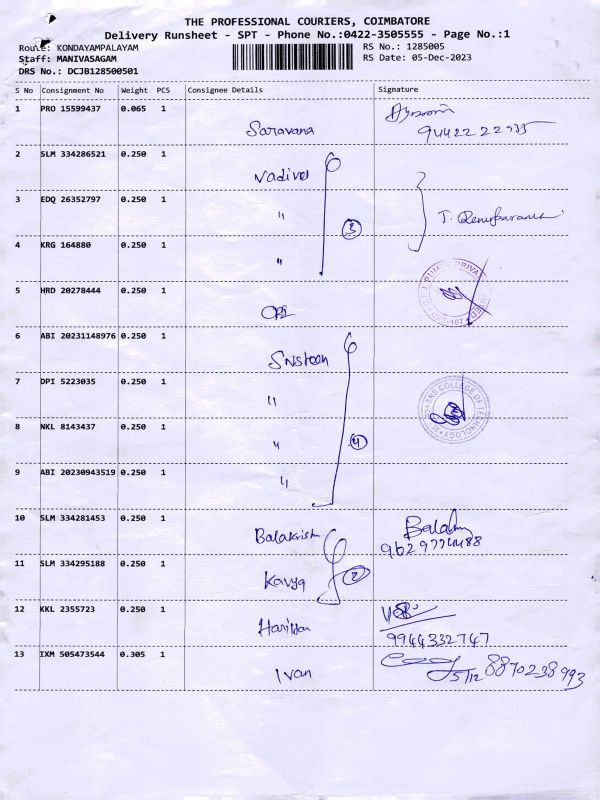 THE PROFESSIONAL COURIERS, COIMBATORE
Delivery Runsheet - SPT - Phone No.:0422-3505555 - Page No.:1
Route: KONDAYAMPALAYAM RS No.: 1285005
Staff: MANIVASAGAM RS Date: 05-Dec-2023
DRS No.: DCJB128500501
S No Consignment No Weight PCS Consignee Details Signature
1 PRO 15599437 0.065 1
Saravana
2 SLM 334286521 0.250 1
Vadivel
3 EDQ 26352797 0.250 1
" 3 T.
4 KRG 164880 0.250 1
"
5 HRD 20278444 0.250 1
6 ABI 20231148976 0.250 1
7 DPI 5223035 0.250 1
"
SNS COLLEGE OF TECHNOLOGY
8 NKL 8143437 0.250 1
" 4
9 ABI 20230943519 0.250 1
"
10 SLM 334281453 0.250 1
Balakrish
11 SLM 334295188 0.250 1
Kavya 2
12 KKL 2355723 0.250 1
9944332747
13 IXM 505473544 0.305 1
Ivan 5/12 8870238993